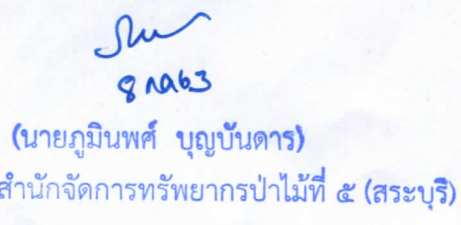 (นายภูมินพศ์ บุญบันดาร)
สำนักจัดการทรัพยากรป่าไม้ที่ ๕ (สระบุรี)